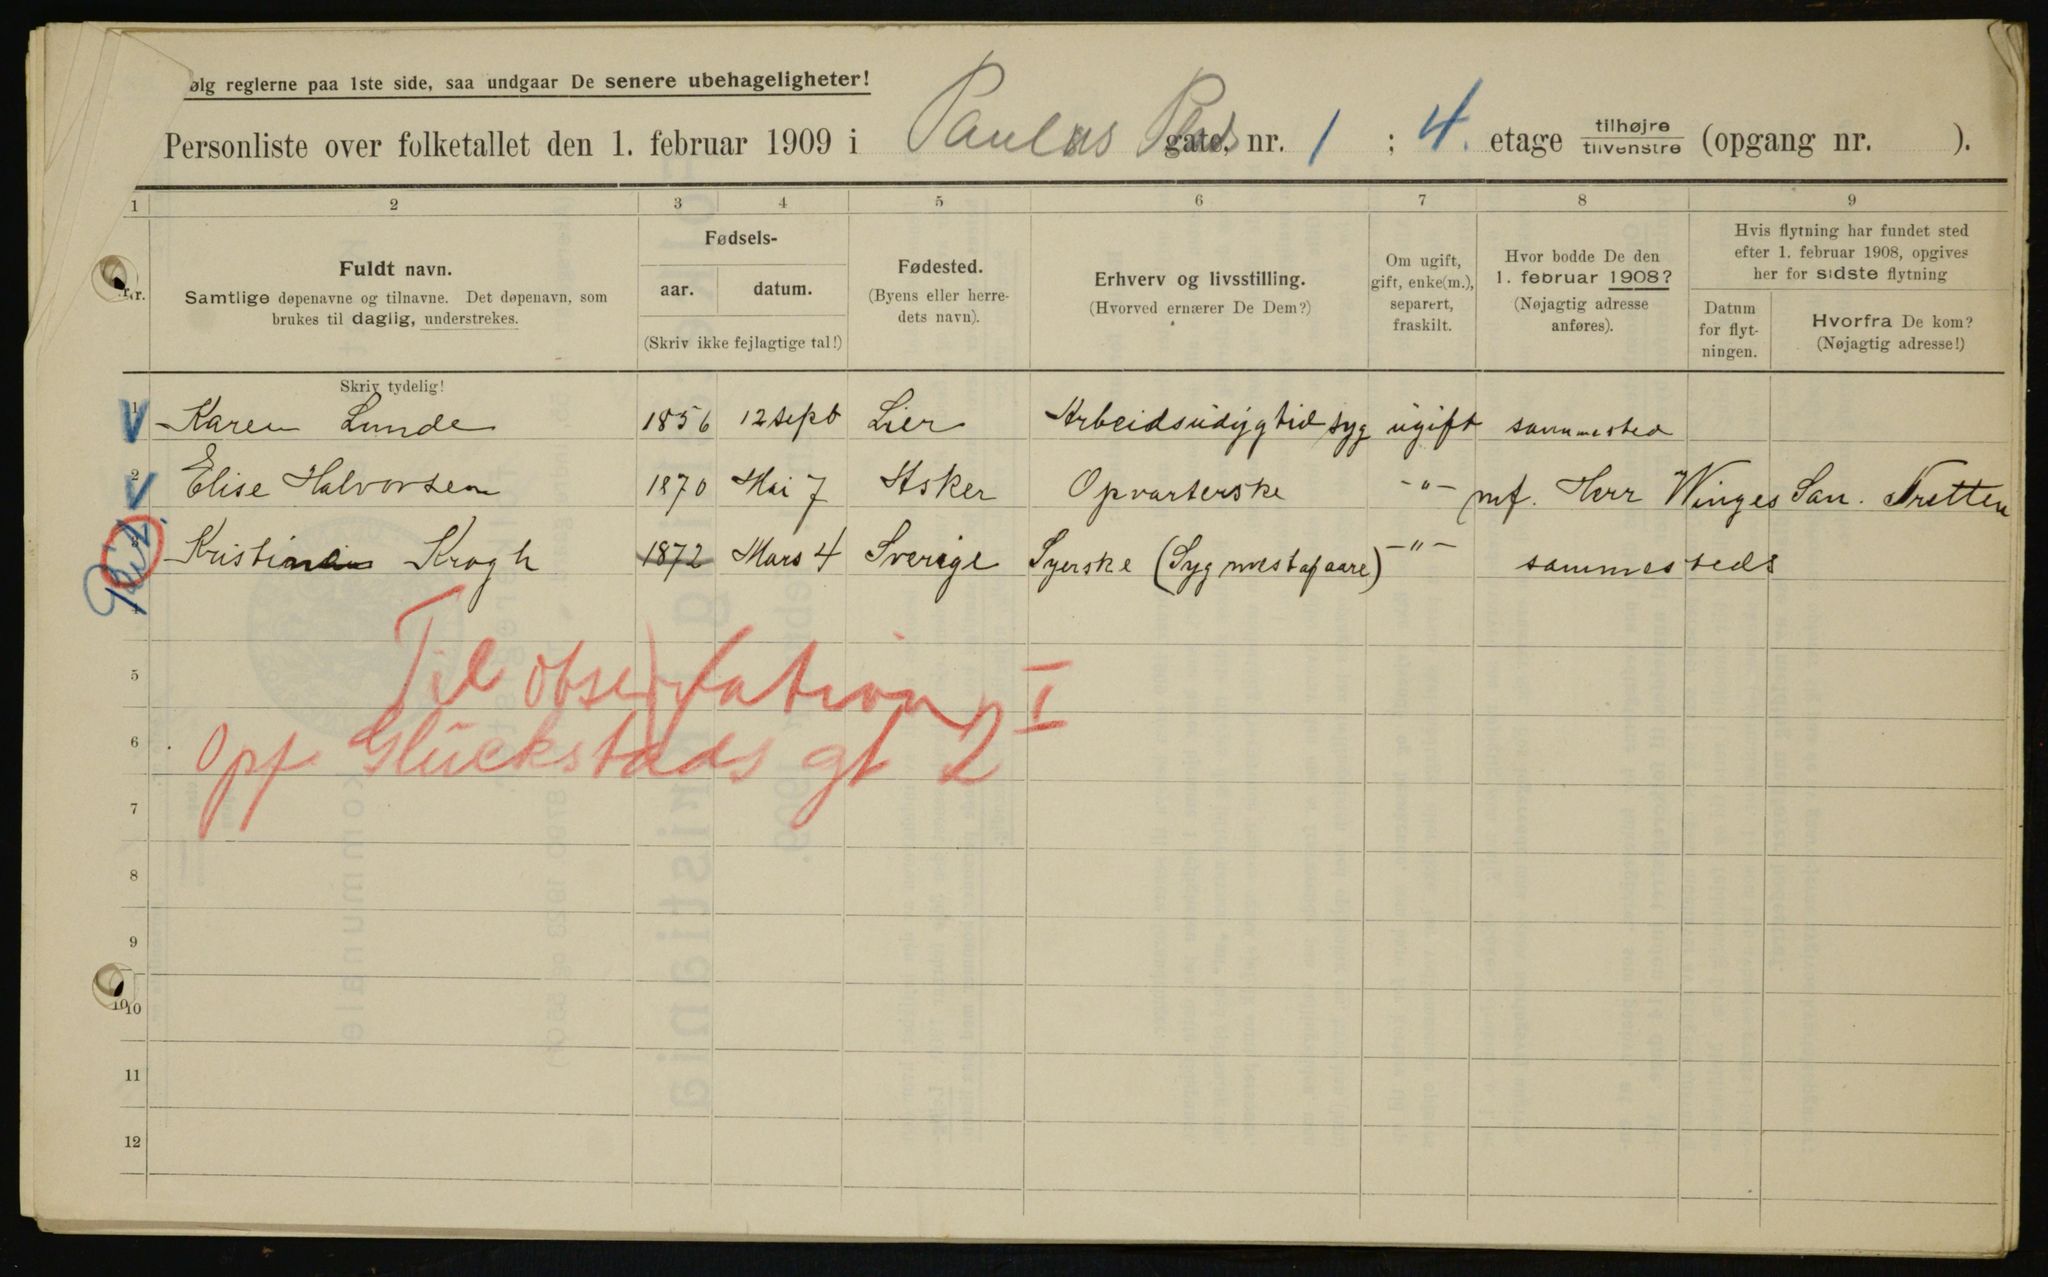 ølg reglerne paa 1ste side, saa undgaar De senere ubehageligheter!
Personliste over folketallet den 1. februar 1909 i Paulus Plads gate, nr. 1 ; 4. etage tilhøjre tilvenstre (opgang nr. ).
1 2 3 4 5 6 7 8 9
Nr.
Fuldt navn.
Samtlige døpenavne og tilnavne. Det døpenavn, som
brukes til daglig, understrekes.
Fødsels-
aar. datum.
(Skriv ikke fejlagtige tal!)
Fødested.
(Byens eller herre-
dets navn).
Erhverv og livsstilling.
(Hvorved ernærer De Dem?)
Om ugift,
gift, enke(m.),
separert,
fraskilt.
Hvor bodde De den
1. februar 1908?
(Nøjagtig adresse
anføres).
Hvis flytning har fundet sted
efter 1. februar 1908, opgives
her for sidste flytning
Datum
for flyt-
ningen.
Hvorfra De kom?
(Nøjagtig adresse!)
Skriv tydelig!
1 Karen Lunde 1856 12 sept Lier Arbeidsudygtid syg ugift sammested
2 Elise Halvorsen 1870 Mai 7 Asker Opvarterske -"- mf. Herr Winges San. Tretten
3 Kristine Krogh 1872 Mars 4 Sverige Syerske (Syg mestaf aare) -"- sammesteds
4
5 Til observation I
6 Opf Glückstads gt 2
7
8
9
10 10
11
12